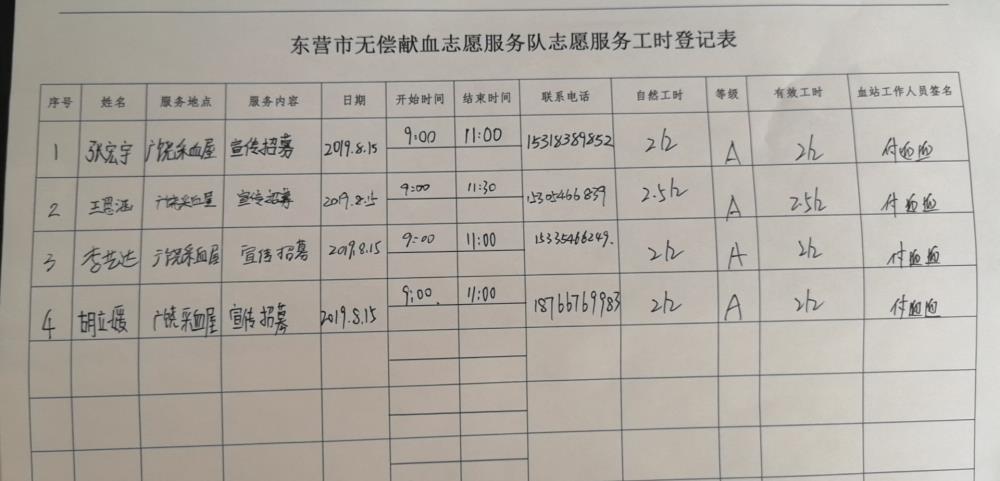 东营市无偿献血志愿服务队志愿服务工时登记表
序号 姓名 服务地点 服务内容 日期 开始时间 结束时间 联系电话 自然工时 等级 有效工时 血站工作人员签名
1 张宏宇 广饶采血屋 宣传招募 2019.8.15 9:00 11:00 15318389852 2h A 2h
2 王恩涵 广饶采血屋 宣传招募 2019.8.15 9:00 11:30 15305466839 2.5h A 2.5h
3 李艺达 广饶采血屋 宣传招募 2019.8.15 9:00 11:00 15335466249. 2h A 2h
4 胡立媛 广饶采血屋 宣传招募 2019.8.15 9:00. 11:00 18766769983 2h A 2h